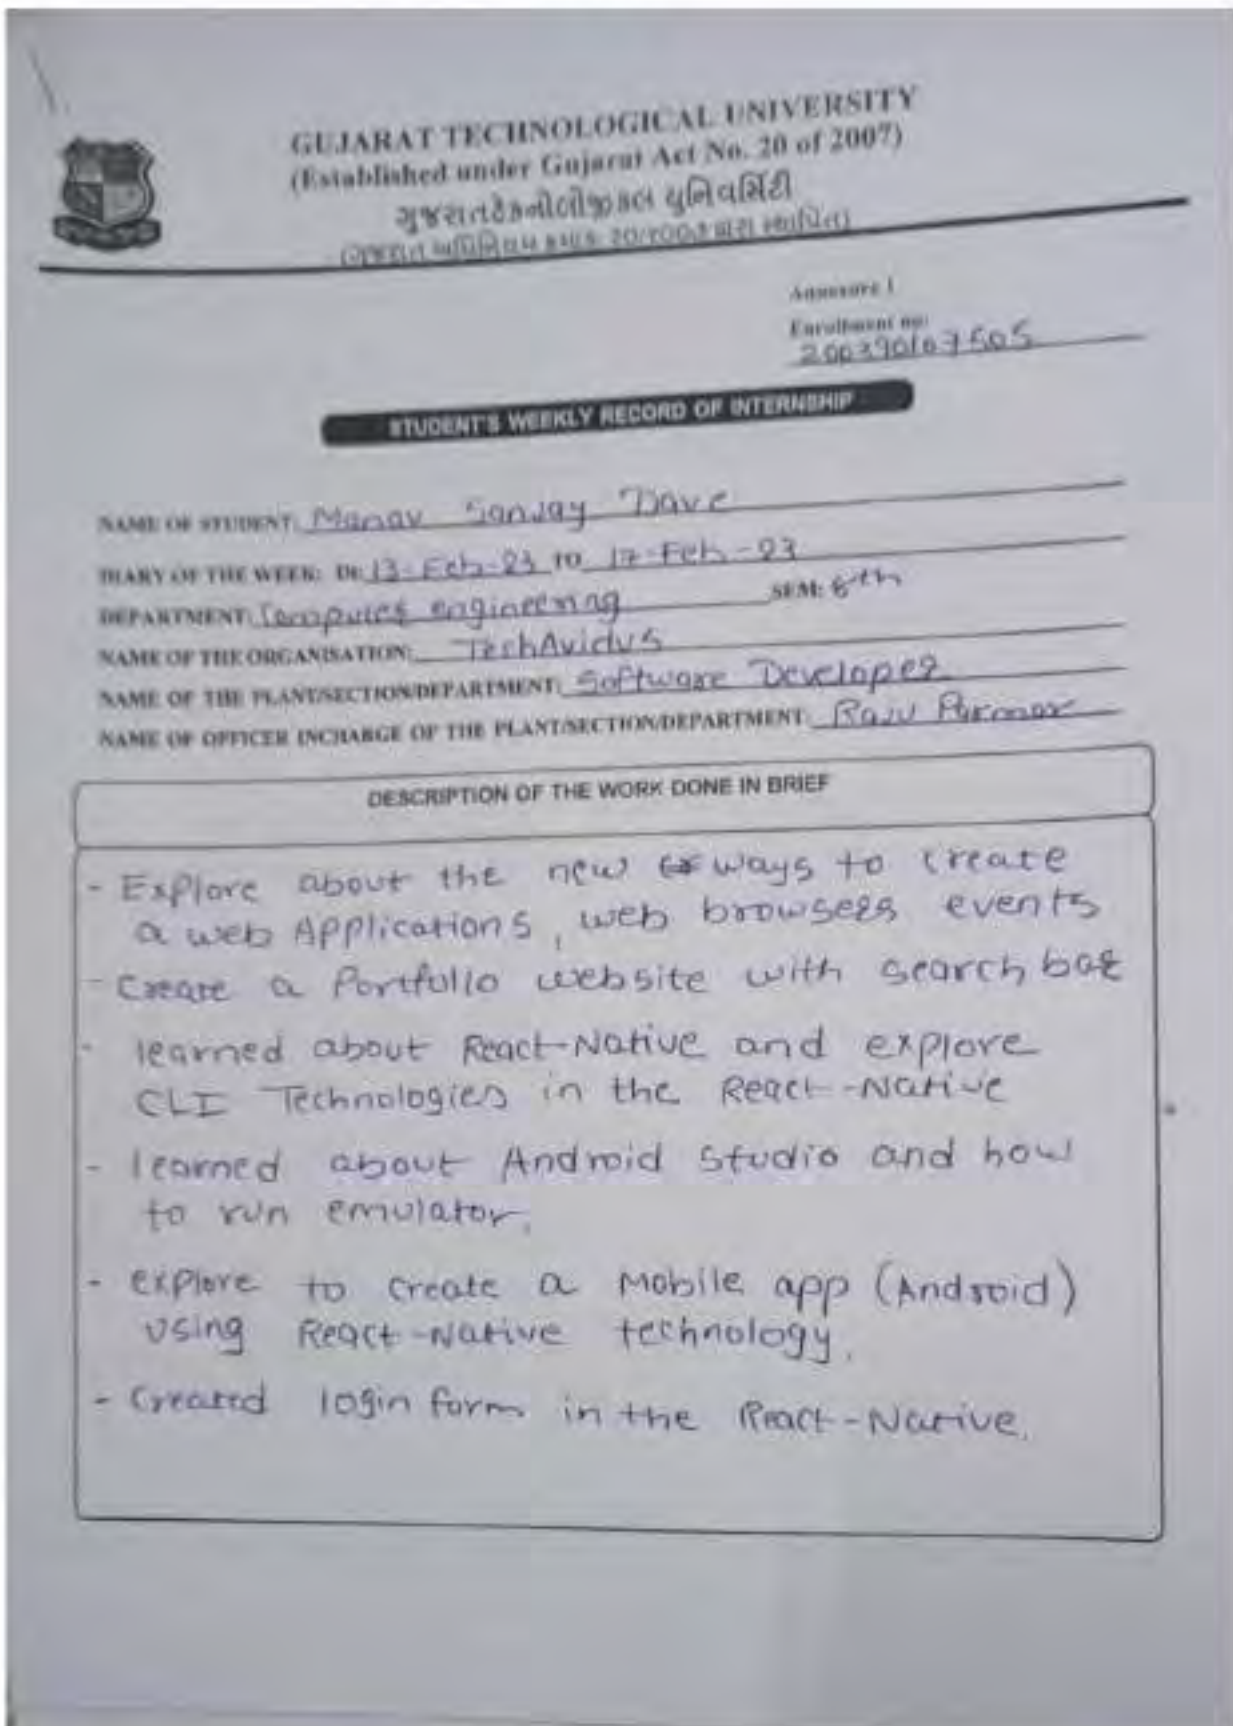 GUJARAT TECHNOLOGICAL UNIVERSITY
(Established under Gujarat Act No. 20 of 2007)
ગુજરાત ટેકનોલોજીકલ યુનિવર્સિટી
(ગુજરાત અધિનિયમ ક્રમાંક: ૨૦/૨૦૦૭ દ્વારા સ્થાપિત)
Annexure 1
Enrollment no:
200390107505
STUDENT'S WEEKLY RECORD OF INTERNSHIP
NAME OF STUDENT: Manav Sanjay Dave
DIARY OF THE WEEK: Dt: 13-Feb-23 TO 17-Feb-23
DEPARTMENT: Computer engineering SEM: 8th
NAME OF THE ORGANISATION: TechAvidus
NAME OF THE PLANT/SECTION/DEPARTMENT: Software Developer
NAME OF OFFICER INCHARGE OF THE PLANT/SECTION/DEPARTMENT: Raju Parmar
DESCRIPTION OF THE WORK DONE IN BRIEF
- Explore about the new ways to create
a web Applications, web browsers events
- Create a Portfolio website with search bar
- learned about React-Native and explore
CLI Technologies in the React-Native
- learned about Android Studio and how
to run emulator.
- explore to create a Mobile app (Android)
using React-Native technology.
- Created login form in the React-Native.